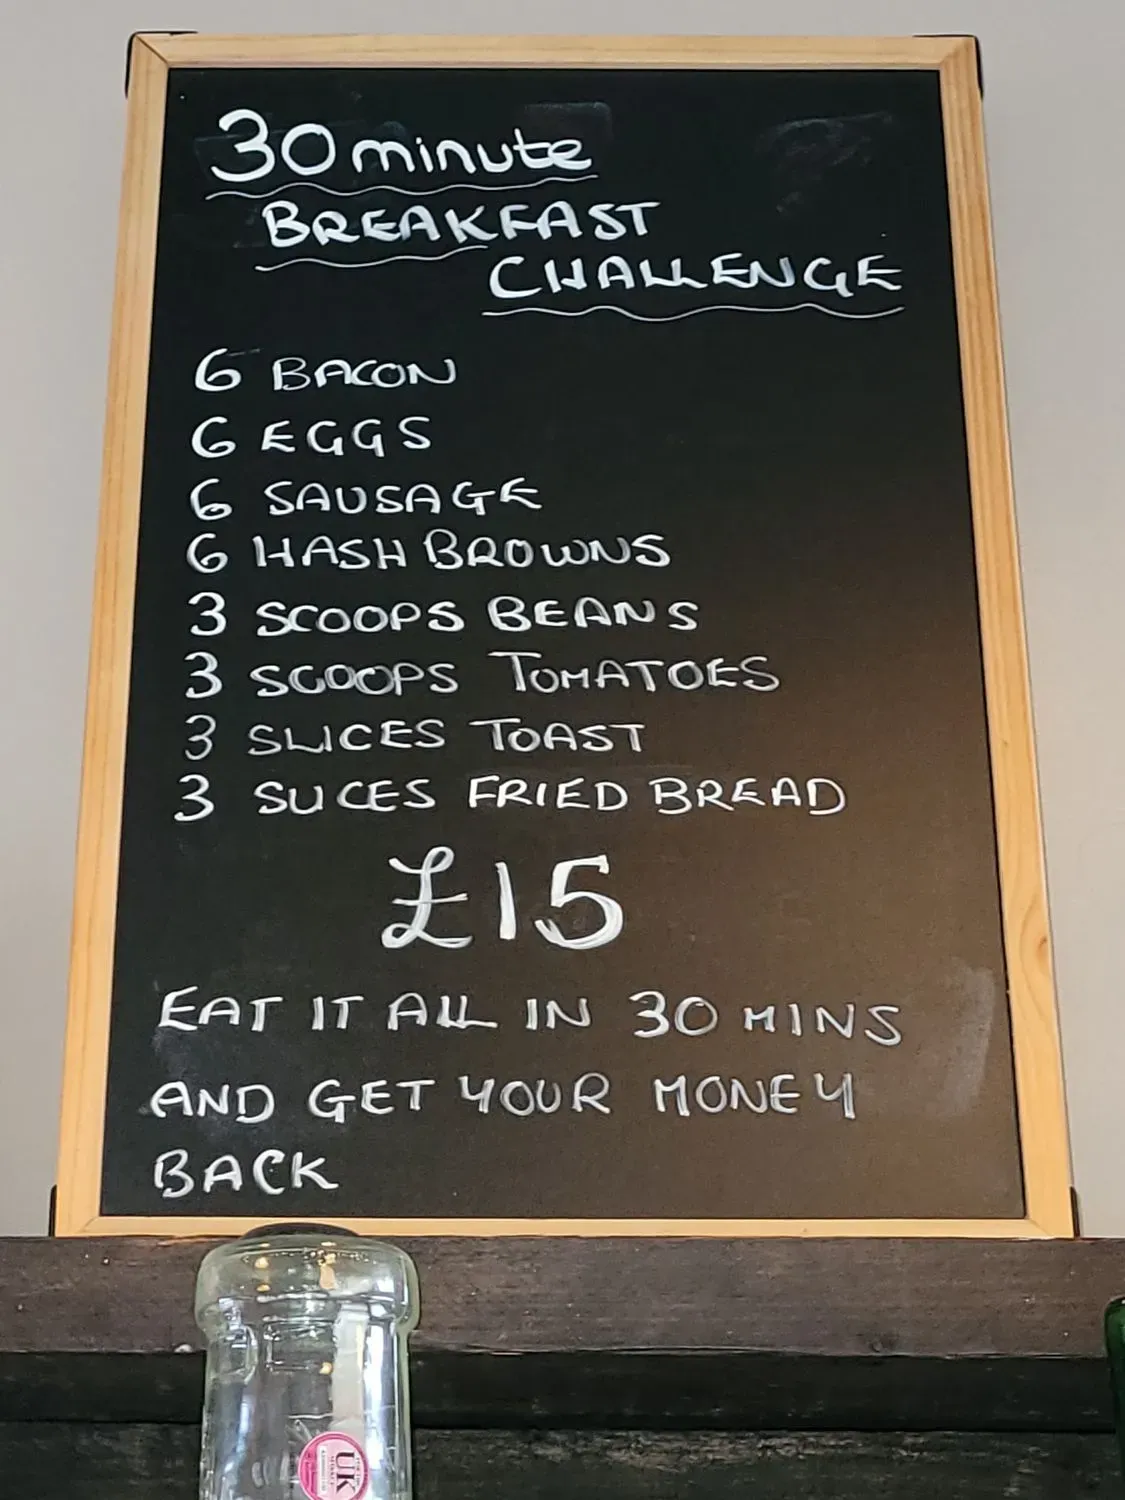 30 minute
BREAKFAST
CHALLENGE
6 BACON
6 EGGS
6 SAUSAGE
6 HASH BROWNS
3 SCOOPS BEANS
3 SCOOPS TOMATOES
3 SLICES TOAST
3 SLICES FRIED BREAD
£15
EAT IT ALL IN 30 MINS
AND GET YOUR MONEY
BACK
UK